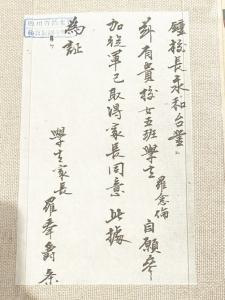 鍾校長永和台鑒:
茲有貴校廿五班學生羅念倫自願參
加從軍已取得家長同意此據
為証
學生家長羅奉爵条